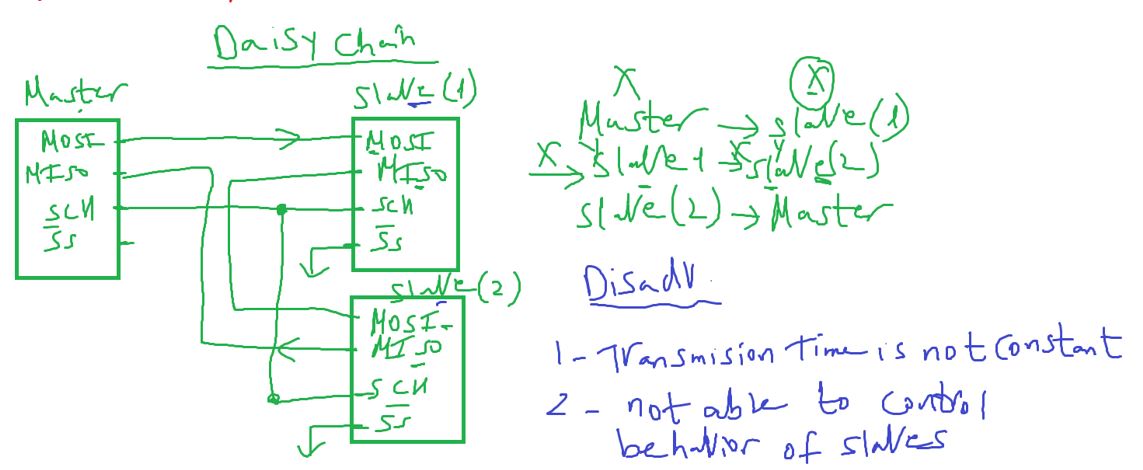 Daisy Chain
Master
MOSI
MISO
SCK
SS
Slave (1)
MOSI
MISO
SCK
SS
Slave (2)
MOSI
MISO
SCK
SS
X X
Master → Slave (1)
X → Slave 1 → Slave (2)
Slave (2) → Master
Disadv.
1 - Transmision Time is not Constant
2 - not able to control
behavior of slaves